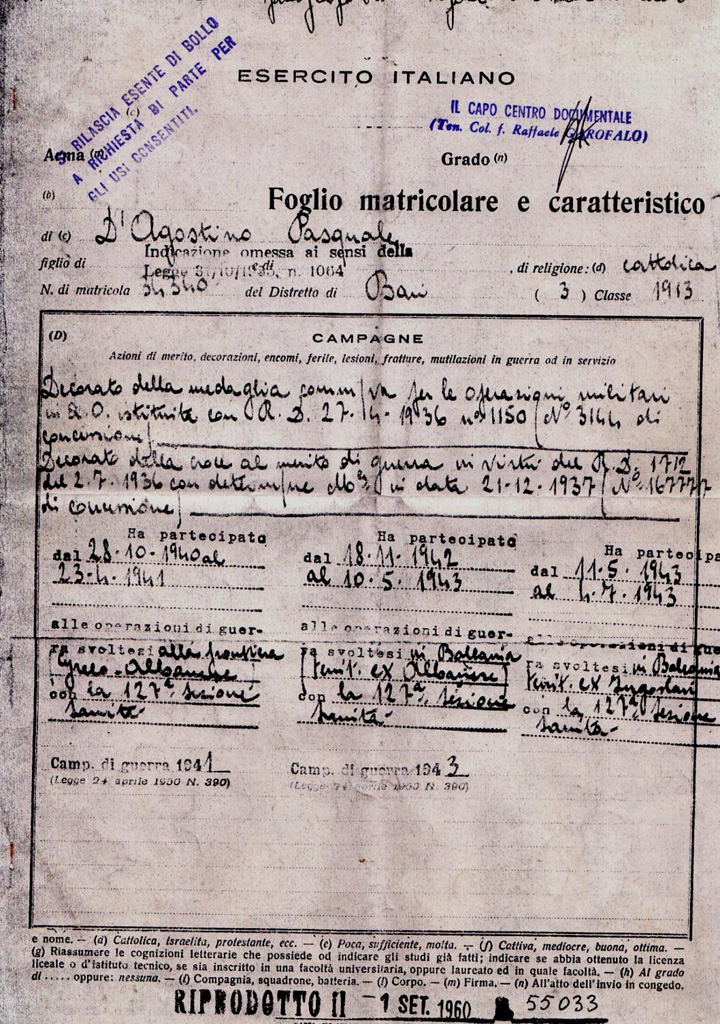 ESERCITO ITALIANO
SI RILASCIA ESENTE DI BOLLO
A RICHIESTA DI PARTE PER
GLI USI CONSENTITI.
(c)
IL CAPO CENTRO DOCUMENTALE
(Ten. Col. f. Raffaele GAROFALO)
Arma (a)
Grado (n)
(b)
Foglio matricolare e caratteristico
di (c) D'Agostino Pasquale
Indicazione omessa ai sensi della
figlio di
Legge 31/10/1955, n. 1064
e di
, di religione: (d) cattolica
N. di matricola 34340 del Distretto di Bari ( 3 ) Classe 1913
(D) CAMPAGNE
Azioni di merito, decorazioni, encomi, ferite, lesioni, fratture, mutilazioni in guerra od in servizio
Decorato della medaglia comm/va per le operazioni militari
in A.O. istituita con R.D. 27-4-1936 n° 1150 (N° 3144 di
concessione)
Decorato della croce al merito di guerra in virtù del R.D. 1712
del 2.7.1936 con determ/ne in data 21-12-1937 (N° 167777
di concessione)
Ha partecipato
dal 28-10-1940 al
23-4-1941
alle operazioni di guer-
ra svoltesi alla frontiera
Greco-Albanese
con la 127ª Sezione
Sanità
Camp. di guerra 1941
(Legge 24 aprile 1950 N. 390)
Ha partecipato
dal 18-11-1942
al 10-5-1943
alle operazioni di guer-
ra svoltesi in Balcania
(territ. ex Albanese)
con la 127ª Sezione
Sanità
Camp. di guerra 1943
(Legge 24 aprile 1950 N. 390)
Ha partecipa
dal 11-5-1943
al 4-7-1943
alle operazioni di gue
ra svoltesi in Balcania
territ. ex Jugoslavi
con la 127ª Sezione
Sanità
e nome. — (d) Cattolica, israelita, protestante, ecc. — (e) Poca, sufficiente, molta. — (f) Cattiva, mediocre, buona, ottima. —
(g) Riassumere le cognizioni letterarie che possiede od indicare gli studi già fatti; indicare se abbia ottenuto la licenza
liceale o d'istituto tecnico, se sia inscritto in una facoltà universitaria, oppure laureato ed in quale facoltà. — (h) Al grado
di ..... oppure: nessuna. — (i) Compagnia, squadrone, batteria. — (l) Corpo. — (m) Firma. — (n) All'atto dell'invio in congedo.
RIPRODOTTO il - 1 SET. 1960 55033